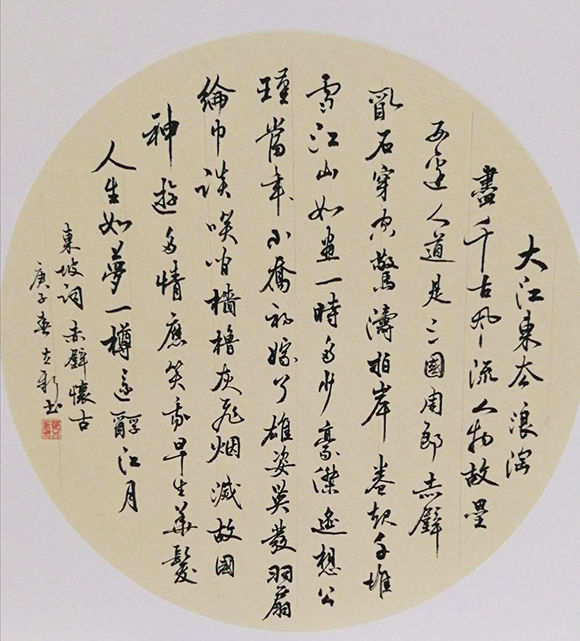 大江東去浪淘
盡千古風流人物故壘
西邊人道是三國周郎赤壁
亂石穿空驚濤拍岸卷起千堆
雪江山如畫一時多少豪傑遙想公
瑾當年小喬初嫁了雄姿英發羽扇
綸巾談笑間檣櫓灰飛烟滅故國
神遊多情應笑我早生華髮
人生如夢一樽還酹江月
東坡詞赤壁懷古
庚子春書